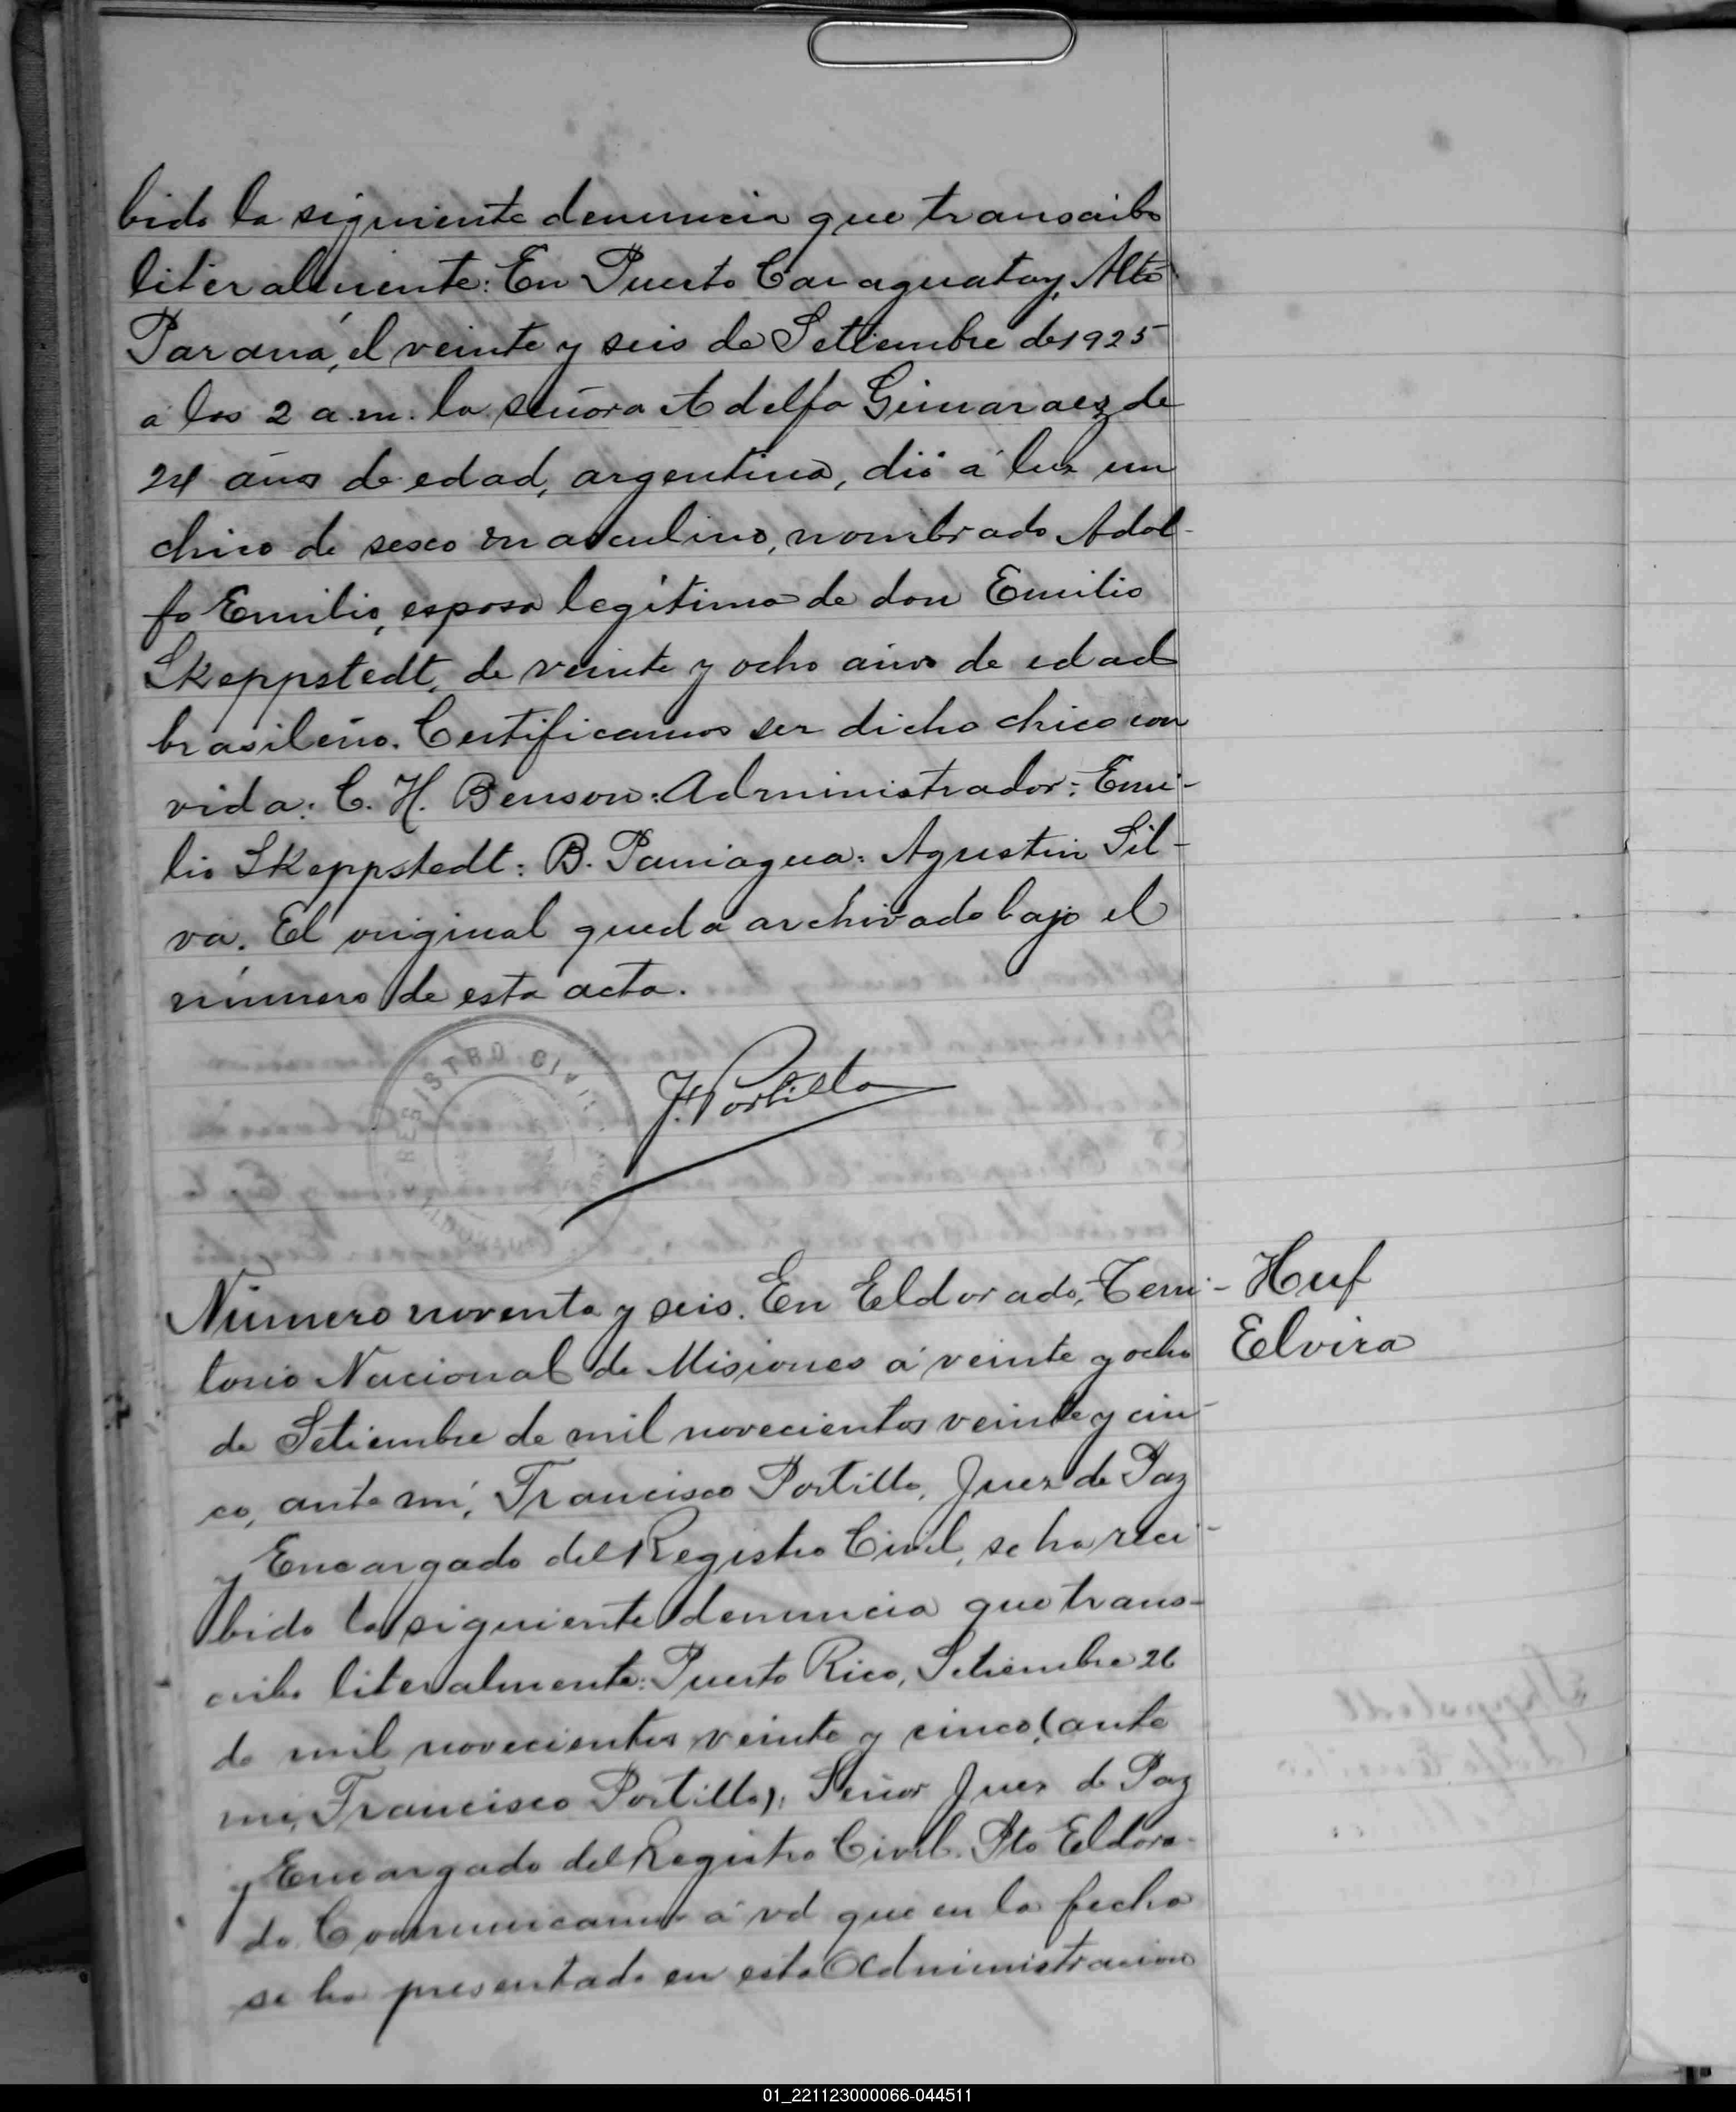 bido la siguiente denuncia que transcribo
literalmente: En Puerto Caraguatay, Alto
Paraná, el veinte y seis de Setiembre de 1925
a las 2 a.m. la señora Adelfa Gimaraez de
24 años de edad, argentina, dió á luz un
chico de sexo masculino, nombrado Adol-
fo Emilio, esposa legítima de don Emilio
Skeppstedt, de veinte y ocho años de edad
brasileño. Certificamos ser dicho chico con
vida: C. H. Benson: Administrador: Emi-
lio Skeppstedt: B. Paniagua: Agustin Sil-
va. El original queda archivado bajo el
número de esta acta.
REGISTRO CIVIL
F. Portillo
Número noventa y seis. En Eldorado, Terri-
torio Nacional de Misiones á veinte y ocho
de Setiembre de mil novecientos veinte y cin-
co, ante mí, Francisco Portillo, Juez de Paz
y Encargado del Registro Civil, se ha reci-
bido la siguiente denuncia que trans-
cribo literalmente: Puerto Rico, Setiembre 26
de mil novecientos veinte y cinco, (ante
mi, Francisco Portillo): Señor Juez de Paz
y Encargado del Registro Civil. Pto Eldora-
do. Comunicamos á vd que en la fecha
se ha presentado en esta Administracion
Huf
Elvira
01_221123000066-044511